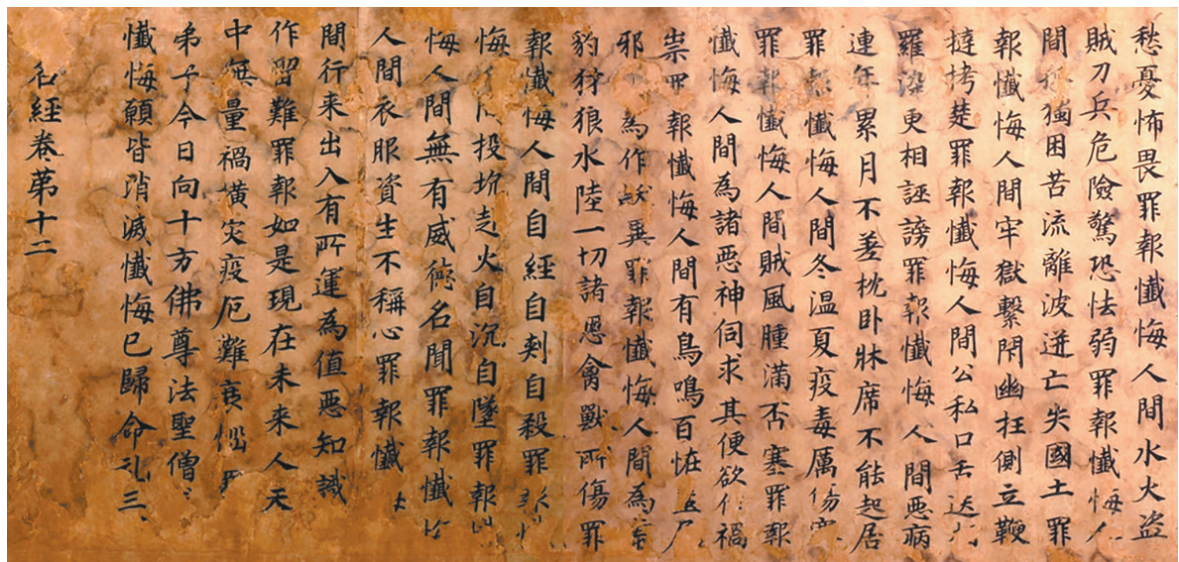 愁憂怖畏罪報懺悔人間水火盜
賊刀兵危險驚恐怯弱罪報懺悔人
間獨困苦流離波迸亡失國土罪
報懺悔人間牢獄繫閇幽枉側立鞭
撻拷楚罪報懺悔人間公私口舌
羅染更相誣謗罪報懺悔人間惡病
連年累月不差枕卧牀席不能起居
罪報懺悔人間冬温夏疫毒厲傷
罪報懺悔人間賊風腫滿否塞罪報
懺悔人間為諸惡神伺求其便欲作禍
祟罪報懺悔人間有鳥鳴百恠
邪為作妖異罪報懺悔人間為
豹犲狼水陸一切諸惡禽獸所傷罪
報懺悔人間自經自刺自殺罪
悔投坑赴火自沉自墜罪報
悔人間無有威德名聞罪報懺
人間衣服資生不稱心罪報懺
間行来出入有所運為值惡知識
作留難罪報如是現在未来人天
中無量禍橫灾疫厄難衰惱
弟子今日向十方佛尊法聖僧
懺悔願皆消滅懺悔已歸命礼三
名經卷第十二